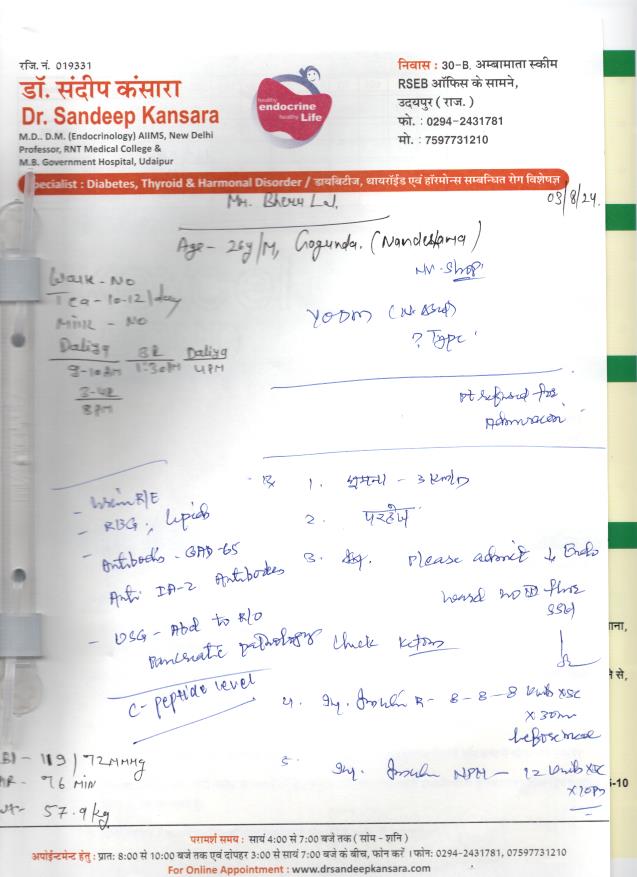 रजि. नं. 019331
डॉ. संदीप कंसारा
Dr. Sandeep Kansara
M.D.. D.M. (Endocrinology) AIIMS, New Delhi
Professor, RNT Medical College &
M.B. Government Hospital, Udaipur
healthy
endocrine
healthy Life
निवास : 30-B. अम्बामाता स्कीम
RSEB ऑफिस के सामने,
उदयपुर ( राज. )
फो. : 0294-2431781
मो. : 7597731210
Specialist : Diabetes, Thyroid & Harmonal Disorder / डायबिटीज, थायरॉईड एवं हॉरमोन्स सम्बन्धित रोग विशेषज्ञ
03/8/24.
Mr. Bheru Lal,
Age - 26y/M, Gogunda. (Nandeshma)
Shop
Walk - No
Tea - 10-12/day
Milk - No
? Type
Daliya BR Daliya
9-10AM 1:30PM 4PM
8PM
Pt refused for
Admission
- Urine R/E
- RBG, Lipids
- Antibodies - GAD-65
Anti IA-2 Antibodies
- USG - Abd to R/O
Pancreatic pathology
C-peptide level
Rx 1. भ्रमण - 3 km/D
2. परहेज
3. Please admit Endo
ward
Check Ketones
4. Inj. Insulin R - 8-8-8 Units x SC
x 30m
before meal
5. Inj. Insulin NPH - 12 Units x SC
x 10PM
BP - 119/72 MMHg
76 Min
57.9 kg
परामर्श समय : सायं 4:00 से 7:00 बजे तक ( सोम - शनि )
अपोईन्टमेन्ट हेतु : प्रात: 8:00 से 10:00 बजे तक एवं दोपहर 3:00 से सायं 7:00 बजे के बीच, फोन करें । फोन: 0294-2431781, 07597731210
For Online Appointment : www.drsandeepkansara.com